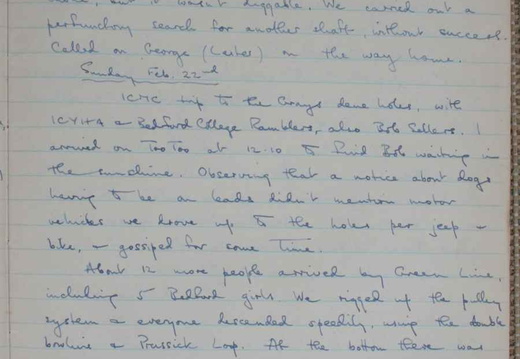 but it wasn't diggable. We carried out a
perfunctory search for another shaft, without success.
Called on George (Leiter) on the way home.
Sunday Feb. 22nd
ICMC trip to the Grays dene holes, with
ICYHA & Bedford College Ramblers, also Bob Sellers. I
arrived on Too Too at 12.10 to find Bob waiting in
the sunshine. Observing that a notice about dogs
having to be on leads didn't mention motor
vehicles we drove up to the holes per jeep &
bike, & gossiped for some time.
About 12 more people arrived by Green Line,
including 5 Bedford girls. We rigged up the pulley
system & everyone descended speedily, using the double
bowline & Prussick Loop. At the bottom there was